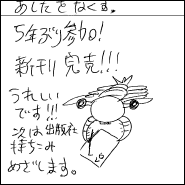 あしたをなくす。
5年ぶり参加!
新刊完売!!!
うれしい
です!!!
次は出版社
持ちこみ
めざします。